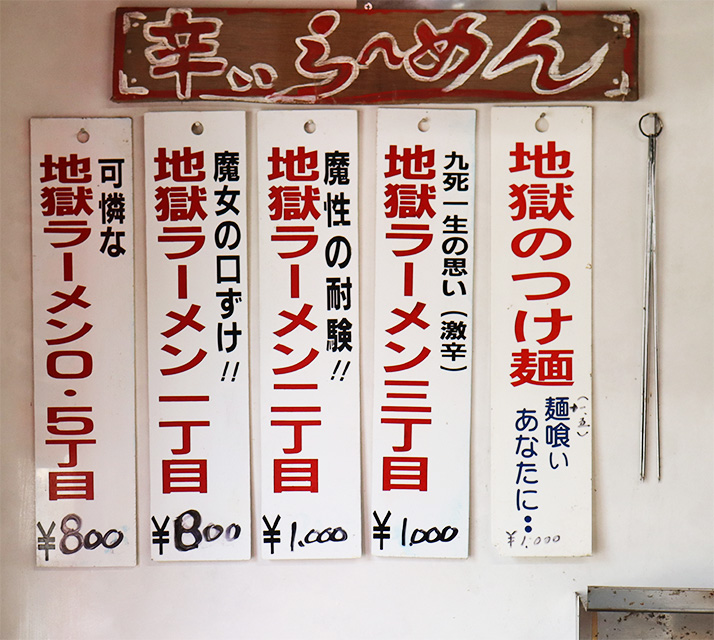 辛いらーめん
地獄のつけ麺
麺喰い
(一、五)
あなたに‥
¥1,000
九死一生の思い(激辛)
地獄ラーメン三丁目
¥1,000
魔性の耐験!!
地獄ラーメン二丁目
¥1,000
魔女の口ずけ!!
地獄ラーメン一丁目
¥800
可憐な
地獄ラーメン0・5丁目
¥800